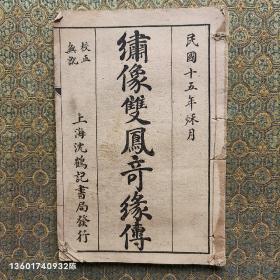 民國十五年秌月
繡像雙鳳奇緣傳
校正無訛
上海沈鶴記書局發行
13601740932陈